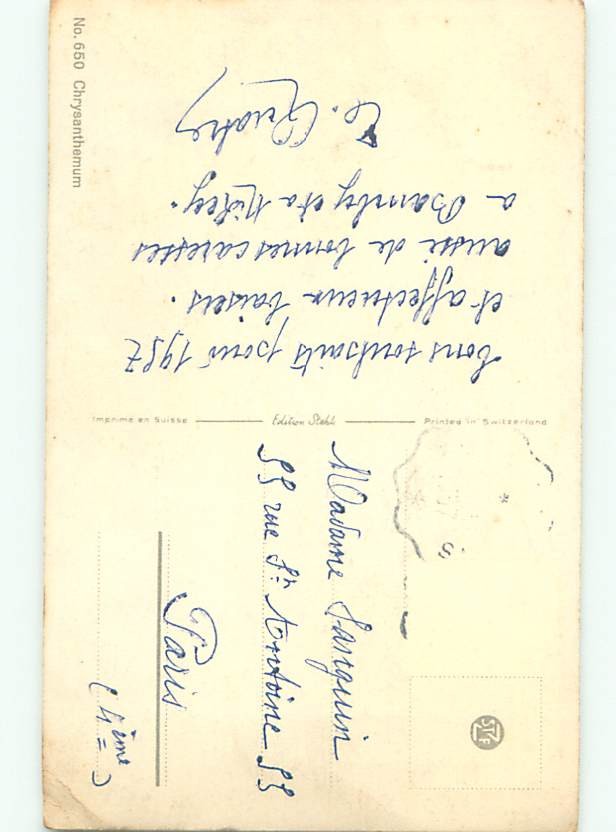 No. 650 Chrysanthemum
bons souhaits pour 1957
et affectueux baisers.
aussi de bonnes caresses
a Bamby et a
Imprimé en Suisse
Edition Stehli
Printed in Switzerland
Madame Sanguin
53 rue St Antoine 53
Paris
(4ème)